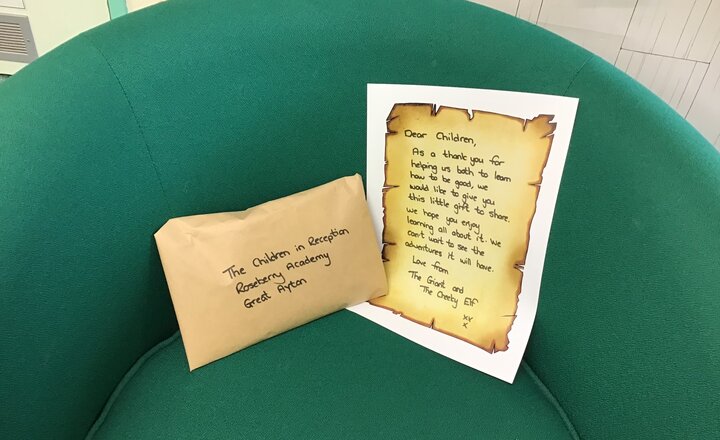 The Children in Reception
Roseberry Academy
Great Ayton
Dear Children,
As a thank you for
helping us both to learn
how to be good, we
would like to give you
this little gift to share.
We hope you enjoy
learning all about it. We
can't wait to see the
adventures it will have.
Love from
The Giant and
The Cheeky Elf
xx
x